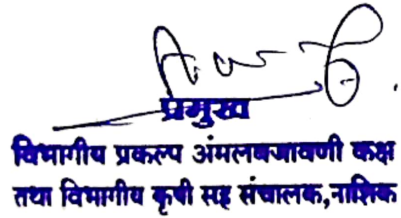 प्रमुख
विभागीय प्रकल्प अंमलबजावणी कक्ष
तथा विभागीय कृषी सह संचालक,नाशिक